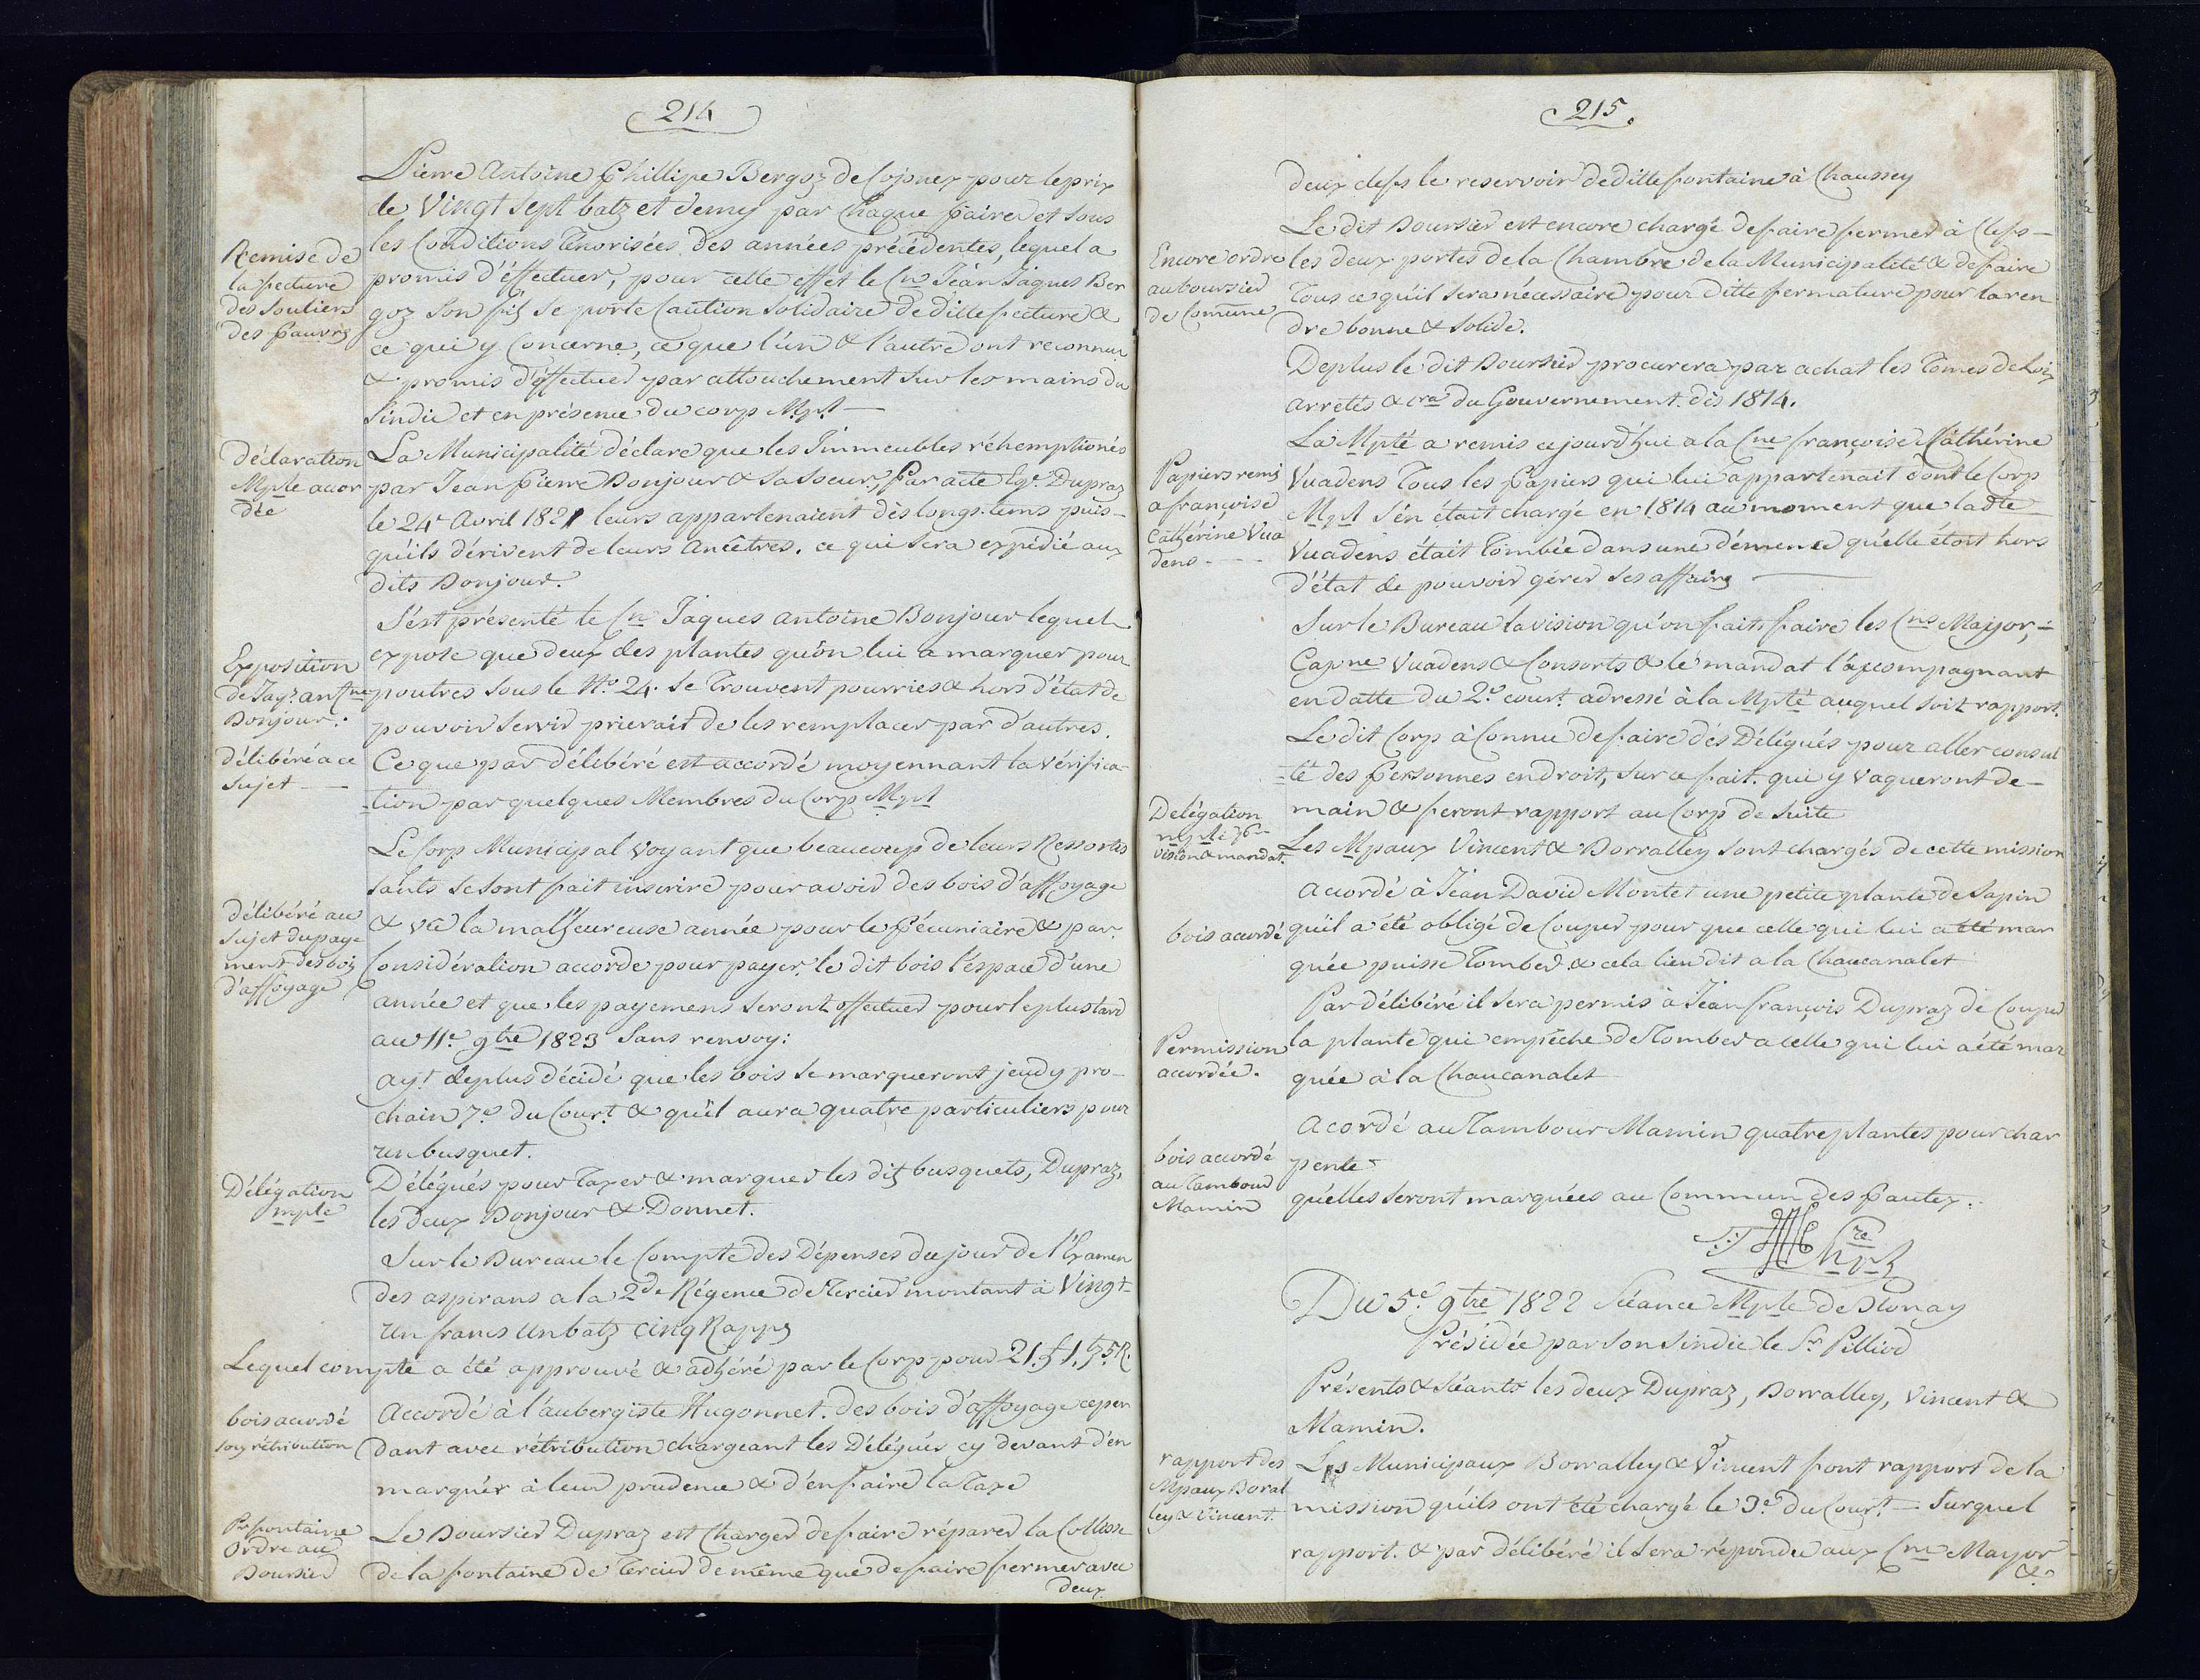 214
Pierre Antoine Phillipe Bergoz de Cojonex pour le prix
de Vingt sept batz et demy par Chaque paire et sous
les Conditions Ténorisées des années précédentes, lequel a
Remise de
la fecture
des Souliers
des Pauvrs
promis d'éffectuer, pour cette effet le Cn Jéan Jaques Ber
goz Son fils Se porte Caution Solidaire de ditte fecture &
ce qui y Concerne, ce que l'ún & l'autre ont reconnu
& promis d'éffectuer par attouchement Sur les mains du
Sindic et en présence du corp Mpl
Déclaration
Mple accor
dée
La Municipalité déclare que les Immeubles réhemptionés
par Jean Pierre Bonjour & Sa Soeur, Par acte Egé Dupraz
le 24e Avril 1821 leurs appartenaient dès longs-tems puis-
qu'ils dérivent de leurs Ancêtres. ce qui Sera expédié aux
dits Bonjour.
Exposition
de Jaqs. antne
Bonjour.
S'ést présenté le Cn Jaques Antoine Bonjour lequel
expose que deux des plantes qu'on lui a marquer pour
poutres Sous le No. 24. Se Trouvent pourries & hors d'état de
pouvoir Servir prierait de les remplacer par d'autres.
délibéré a ce
Sujet
Ce que par délibéré est accordé moyennant la vérifica-
-tion par quelques Membres du Corp Mpl
Le Corp Municipal Voyant que beaucoup de leurs Ressortis
sants Se Sont fait inscrire pour avoir des bois d'affoyage
délibéré au
Sujet du paye
ment des bois
d'affoyage
& vû la malheureuse année pour le Pécuniaire & par
Considération accorde pour payer le dit bois l'éspace d'une
année et que les payemens Seront effectuer pour le plus tard
au 11e 9bre 1823 Sans renvoy:
ayt. deplus décidé que les bois Se marqueront jeudy pro-
chain 7e du Court. & qu'il aura quatre particuliers pour
un busquet.
Délégation
mple
Délégués pour Taxer & marquer les dits busquets, Dupraz,
les deux Bonjour & Donnet.
Sur le Bureau le Compte des Dépenses du jour de l'Examen
des aspirans a la 2de Régence de Tercier montant à Vingt-
un francs un batz cinq Rapps
Lequel compte a été approuvé & adhéré par le Corp pour 21.f 1.bz 5.R.
bois accordé
sous rétribution
Accordé à l'aubergiste Hugonnet. des bois d'affoyage cepen
dant avec rétribution chargeant les Délégués cy devant d'en
marquer à leur prudence & d'en faire la Taxe
Pr fontaine
Ordre au
Boursier
Le Boursier Dupraz est Charger de faire réparer la Collisse
de la fontaine de Tercier de même que de faire fermer avec
deux
215.
deux clefs le reservoir de ditte fontaine à Chaussey
Encore ordre
au boursier
de Comune
Le dit Boursier est encore chargé de faire fermer à Clefs
les deux portes de la Chambre de la Municipalité & de faire
Tous ce qu'il Sera nécessaire pour ditte fermature pour la ren
dre bonne & Solide.
Deplus le dit Boursier procurera par achat les Tomes de Loix
Arretés & cra du Gouvernement dès 1814.
Papiers remis
a françoise
Cathérine Vua
dens
La Mpté a remis ce jourd'hui a la Cne françoise Cathérine
Vuadens Tous les Papiers qui lui appartenait dont le Corp
Mpl S'én était chargé en 1814 au moment que la dte
Vuadens était Tombée dans une démence qu'elle étoit hors
d'état de pouvoir gérer Ses affairs
Sur le Bureau la vision qu'on fait faire les Cns Mayor,
Capne Vuadens & Consorts & le mandat l'accompagnant
en datte du 2e court. adressé à la Mpté auquel Soit rapport.
Le dit Corp à Connu de faire dés Délégués pour aller consul
té des Personnes en droit, Sur ce fait. qui y vaqueront de-
main & feront rapport au Corp de Suite
Delégation
mple pr
vision & mandat.
Les Mpaux Vincent & Borralley Sont chargés de cette mission
bois accordé
Accordé à Jéan David Montet une petite plante de Sapin
qu'il a été obligé de Couper pour que celle qui lui a été mar
quée puisse Tomber & cela lieu dit a la Chaucanalet
Permission
accordée.
Par délibéré il Sera permis à Jéan françois Dupraz de Couper
la plante qui empêche de Tomber a celle qui lui a été mar
quée à la Chaucanalet
bois accordé
au Tambour
Mamin
Acordé au Tambour Mamin quatre plantes pour char
pente
qu'elles Seront marquées au Commun des Pautex.
Du 5e 9bre 1822 Séance Mple de Blonay
Présidée par Son Sindic le Sr Pilliod
Présents & Séants les deux Dupraz, Borralley, Vincent &
Mamin.
rapport des
Mpaux Boral
ley & Vincent.
Les Municipaux Borralley & Vincent font rapport de la
mission qu'ils ont été chargé le 3e du Court. Surquel
rapport. & par délibéré il Sera répondu aux Cns Mayor
&